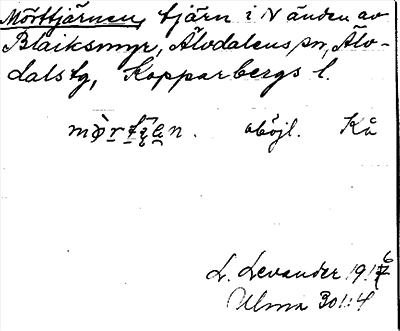 Mörttjärnen, tjärn i N änden av
Blaiksmyr, Älvdalens sn, Älv-
dals tg, Kopparbergs l.
oböjl. Kå
L. Levander 1916
Ulma 301:4